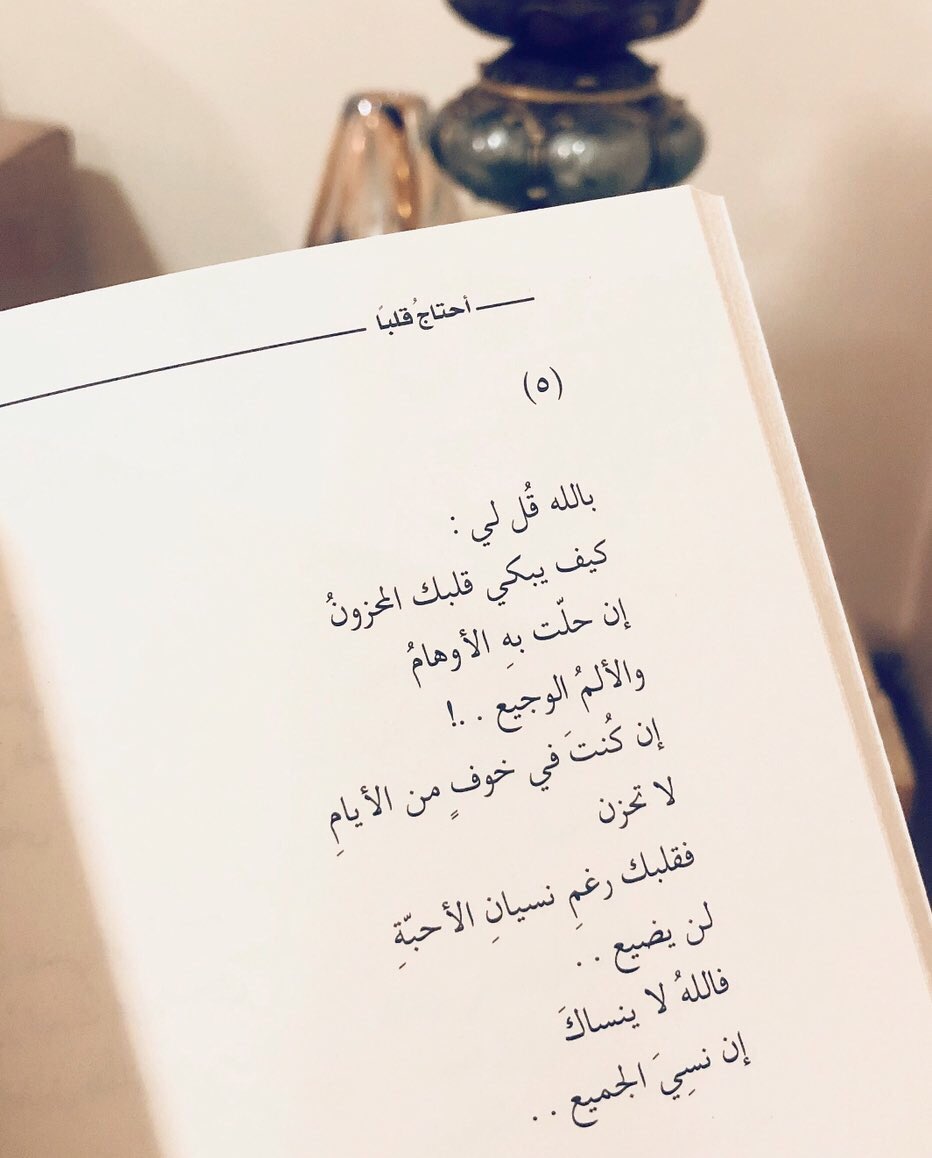 أحتاجُ قلباً
(٥)
بالله قُل لي :
كيف يبكي قلبك المحزونُ
إن حلّت بهِ الأوهامُ
والألمُ الوجيع . .!
إن كُنتَ في خوفٍ من الأيامِ
لا تحزن
فقلبك رغمِ نسيانِ الأحبّةِ
لن يضيع . .
فاللهُ لا ينساكَ
إن نسِيَ الجميع . .